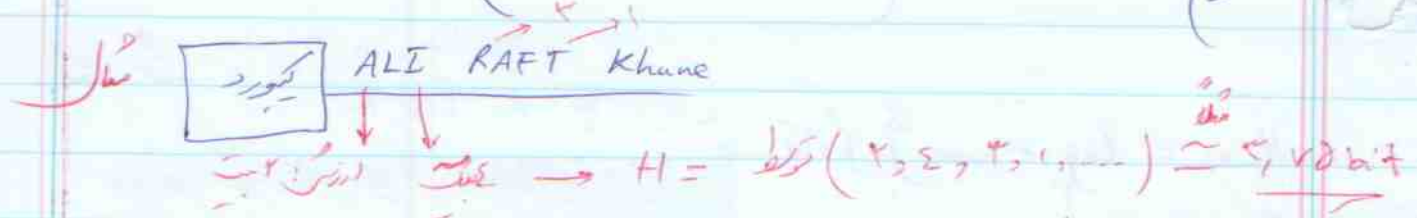 ۳ ۱
مثال کیبورد ALI RAFT Khune
ارزش: ۲ بیت ۴ بیت → H = متوسط (۲, ٤, ۳, ۱, ....) ≃ ۲٫۷۵ bit
مثلاً